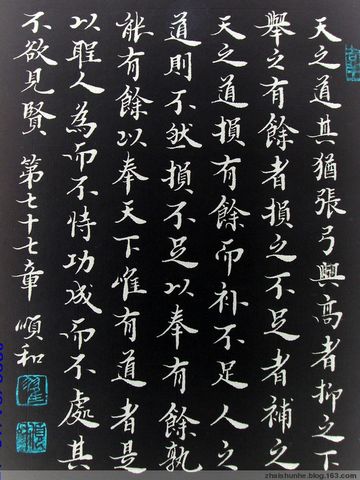 天之道其猶張弓與高者抑之下
舉之有餘者損之不足者補之
天之道損有餘而补不足人之
道則不然損不足以奉有餘孰
能有餘以奉天下唯有道者是
以聖人為而不恃功成而不處其
不欲見賢 第七十七章 順和
zhaishunhe.blog.163.com